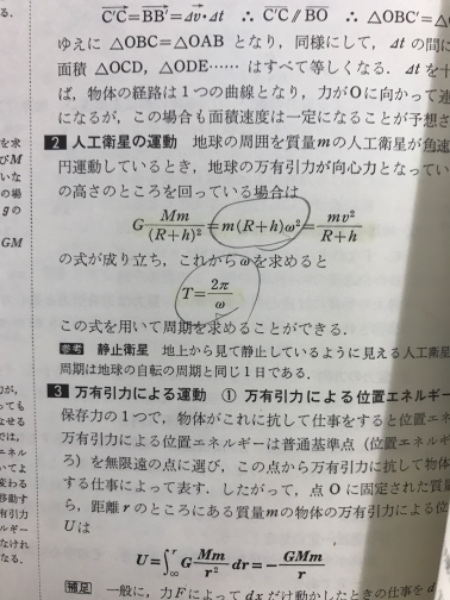 C'C=BB'=Δv・Δt ∴ C'C∥BO ∴ △OBC'=△
ゆえに △OBC=△OAB となり，同様にして，Δt の間に
面積 △OCD，△ODE…… はすべて等しくなる．Δt を十
ば，物体の経路は1つの曲線となり，力がOに向かって連
になるが，この場合も面積速度は一定になることが予想さ
2 人工衛星の運動 地球の周囲を質量mの人工衛星が角速
円運動しているとき，地球の万有引力が向心力となってい
の高さのところを回っている場合は
G Mm/(R+h)² = m(R+h)ω² = mv²/R+h
の式が成り立ち，これからωを求めると
T = 2π/ω
この式を用いて周期を求めることができる．
参考 静止衛星 地上から見て静止しているように見える人工衛星
周期は地球の自転の周期と同じ1日である．
3 万有引力による運動 ① 万有引力による位置エネルギー
保存力の1つで，物体がこれに抗して仕事をすると位置エネ
万有引力による位置エネルギーは普通基準点（位置エネルギ
ろ）を無限遠の点に選び，この点から万有引力に抗して物体
する仕事によって表す．したがって，点Oに固定された質量
ら，距離rのところにある質量mの物体の万有引力による位
Uは
U=∫∞r G Mm/r² dr = - GMm/r
補足 一般に，力Fによってdxだけ動かしたときの仕事をd
る．
を求
びM
いな
の場
gの
GM
力が，
っても
なせる
では，
エネル
いてよ
変わる
移動す
有引力
ルギー
なけれ
なる．